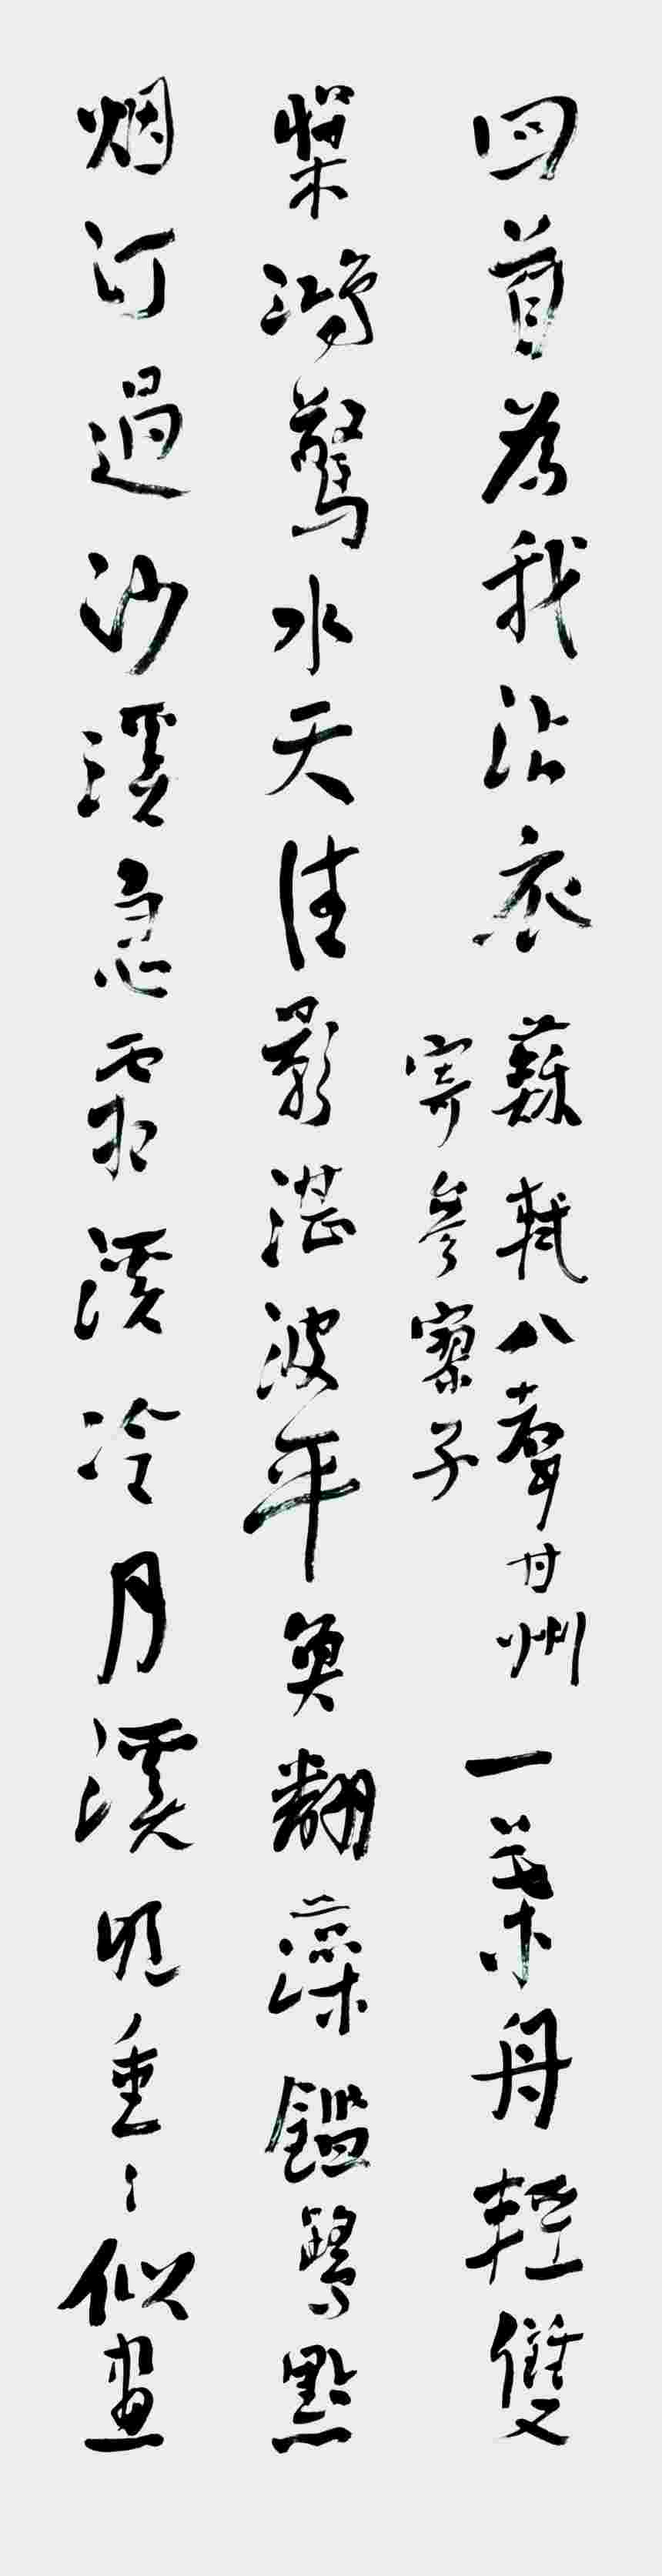 回首為我沾衣 蘇軾八聲甘州
寄參寥子
一葉舟輕雙
槳鴻驚水天清影湛波平魚翻藻鑑鷺點
烟汀過沙溪急霜溪冷月溪明重重似畫